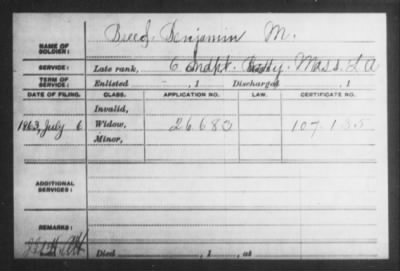 NAME OF SOLDIER: Breed, Benjamin M.
SERVICE: Late rank, 6 Indpt. Batty. Mass. L A
TERM OF SERVICE: Enlisted , 1 Discharged , 1
DATE OF FILING. CLASS. APPLICATION NO. LAW. CERTIFICATE NO.
Invalid,
1863, July 6 Widow, 26.683 107.135
Minor,
ADDITIONAL SERVICES:
REMARKS:
Died , 1 , at